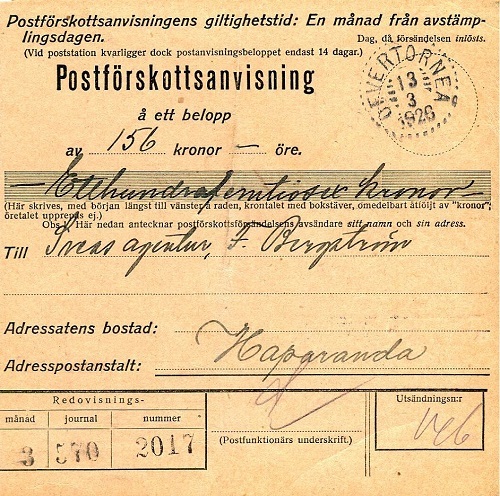 Postförskottsanvisningens giltighetstid: En månad från avstämp-
lingsdagen.
Dag, då försändelsen inlösts.
(Vid poststation kvarligger dock postanvisningsbeloppet endast 14 dagar.)
Postförskottsanvisning
ÖFVERTORNEÅ
13
3
1926
å ett belopp
av 156 kronor — öre.
— Etthundrafemtiosex kronor
(Här skrives, med början längst till vänster å raden, krontalet med bokstäver, omedelbart åtföljt av "kronor";
öretalet upprepas ej.)
Obs.! Här nedan antecknar postförskottsförsändelsens avsändare sitt namn och sin adress.
Till Sveas agentur, F. Bergström
Adressatens bostad:
Adresspostanstalt: Haparanda
Redovisnings-
månad journal nummer
3 570 2017
(Postfunktionärs underskrift.)
Utsändningsn:r